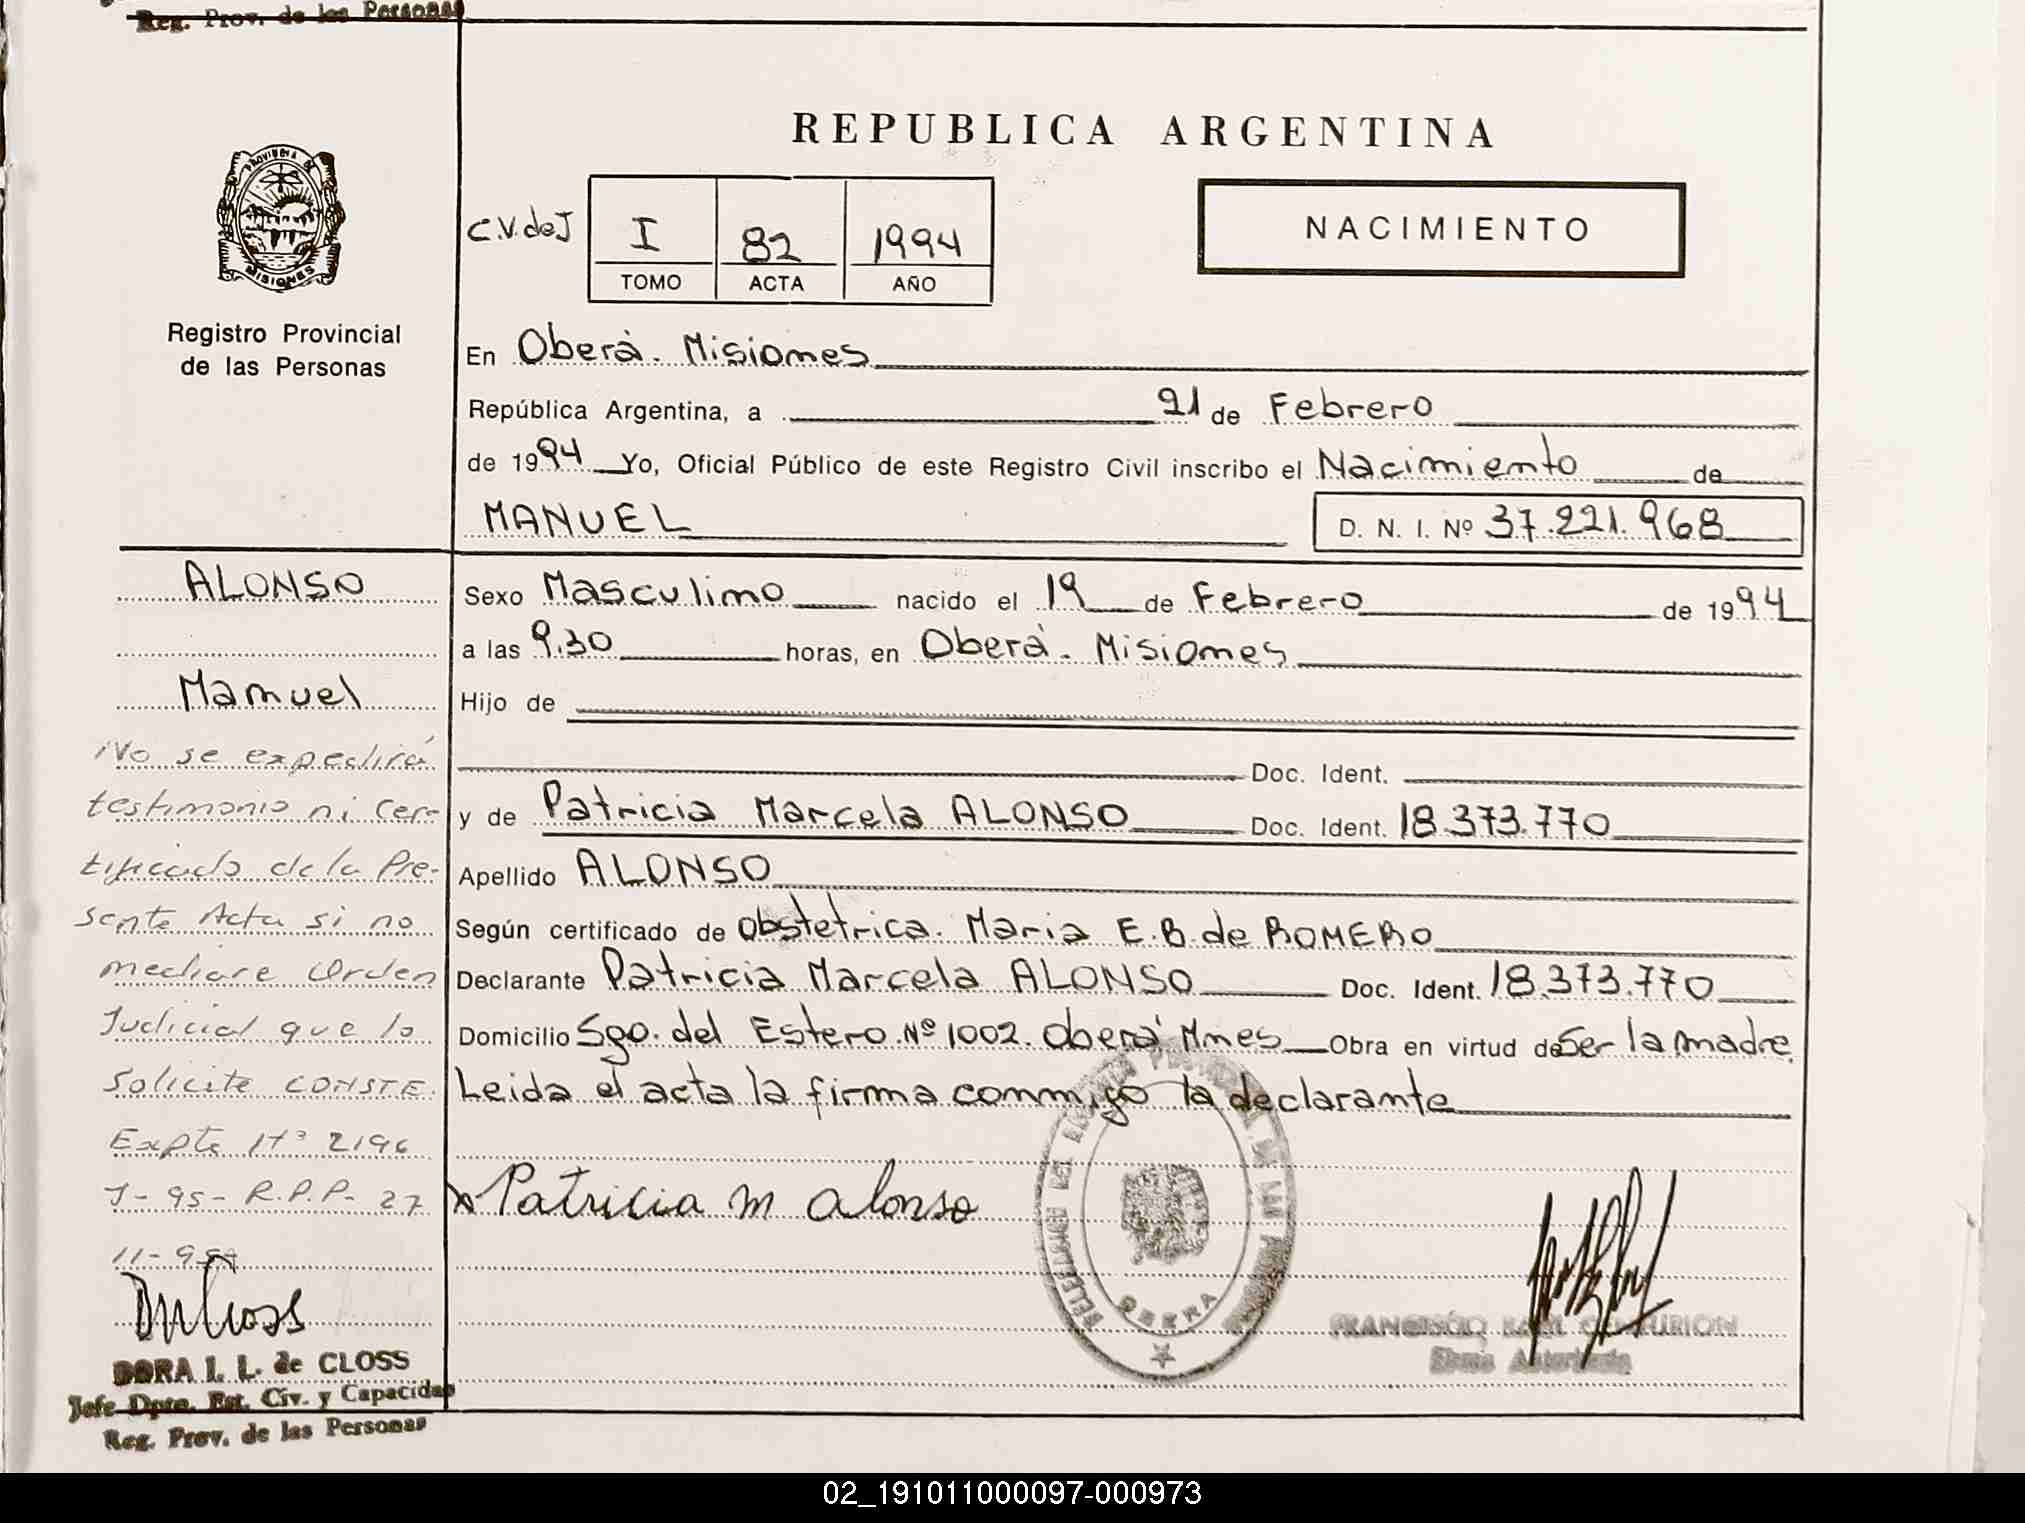 Reg. Prov. de las Personas
REPUBLICA ARGENTINA
PROVINCIA DE
MISIONES
Registro Provincial
de las Personas
C.V.deJ
I 82 1994
TOMO ACTA AÑO
NACIMIENTO
En Oberà. Misiones
República Argentina, a 21 de Febrero
de 1994 Yo, Oficial Público de este Registro Civil inscribo el Nacimiento de
MANUEL D. N. I. Nº 37.221.968
ALONSO
Manuel
Sexo Masculino nacido el 19 de Febrero de 1994
a las 9.30 horas, en Oberà. Misiones
Hijo de
Doc. Ident.
y de Patricia Marcela ALONSO Doc. Ident. 18.373.770
Apellido ALONSO
Según certificado de Obstetrica. Maria E.B. de ROMERO
Declarante Patricia Marcela ALONSO Doc. Ident. 18.373.770
Domicilio Sgo. del Estero Nº 1002. Oberá Mnes Obra en virtud de Ser la madre.
Leida el acta la firma conmigo la declarante
Patricia M Alonso
No se expedirá
testimonio ni cer-
tificado de la Pre-
sente Acta si no
mediare Orden
Judicial que lo
Solicite CONSTE.
Expte Nº 2196
J-95- R.P.P- 27
11-95
DORA I. L. de CLOSS
Jefe Dpto. Est. Civ. y Capacidad
Reg. Prov. de las Personas
OBERA
FRANCISCO CENTURION
Firma Autorizada
02_191011000097-000973